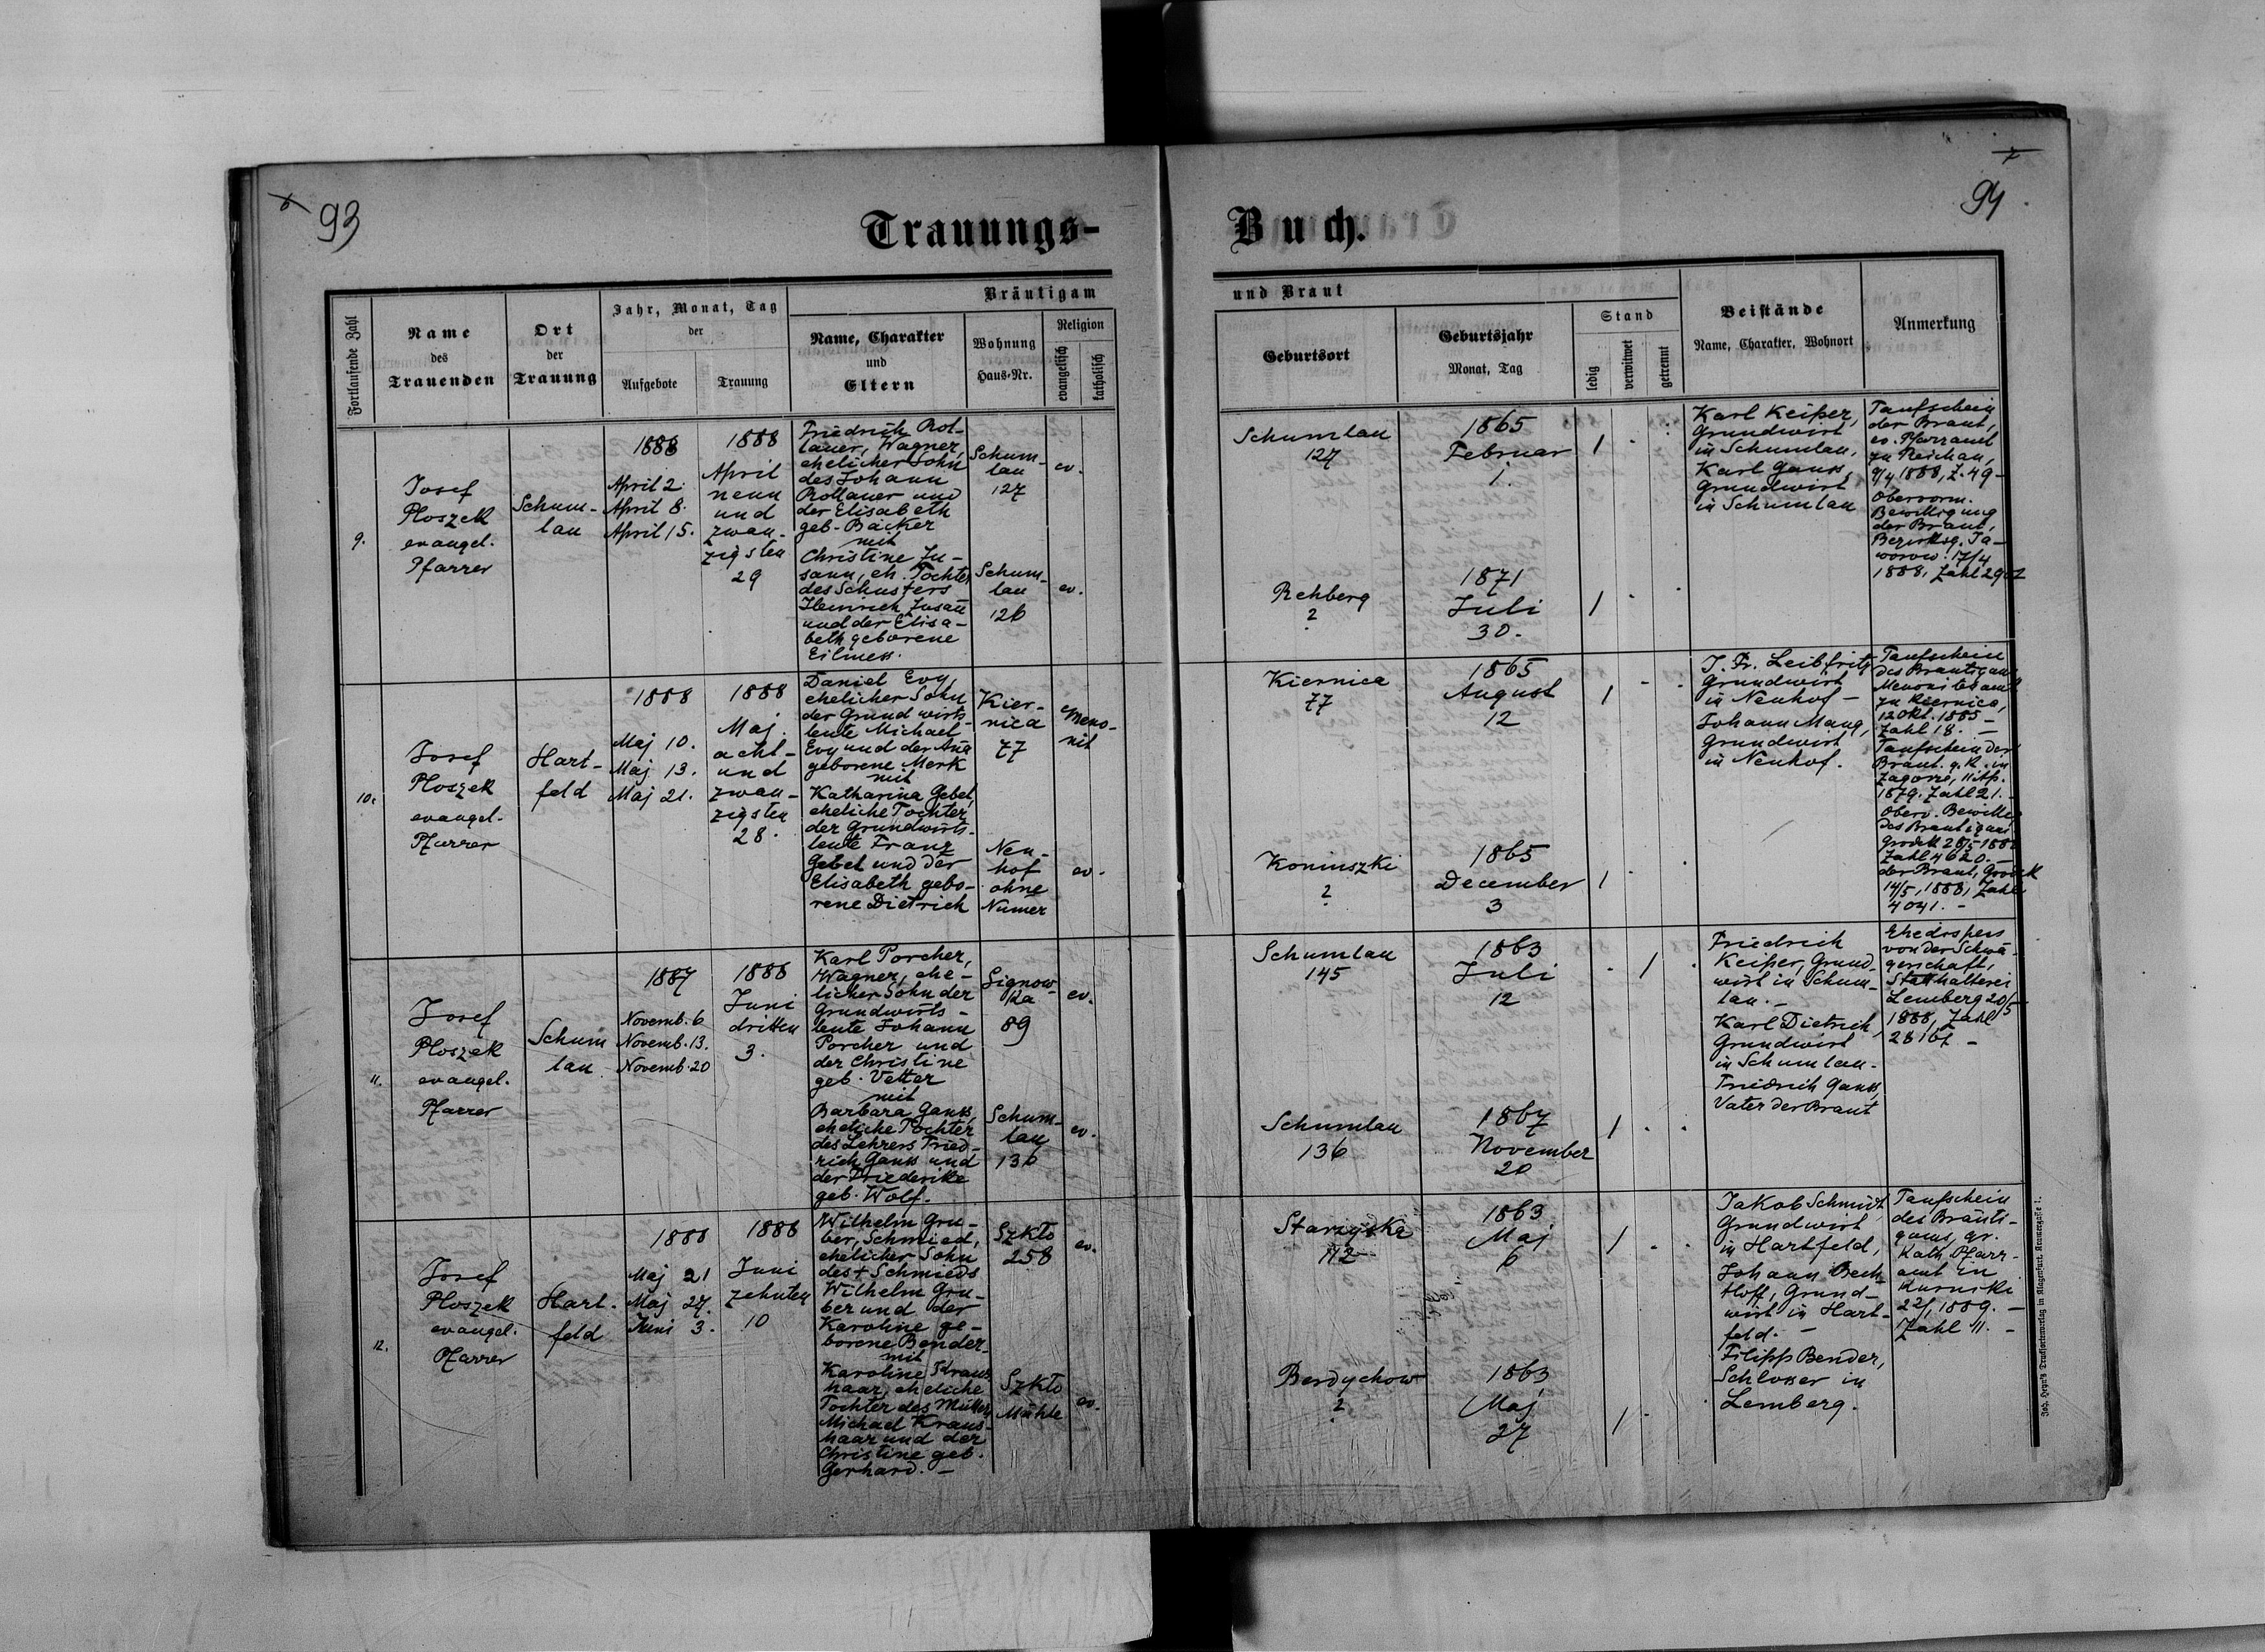 93
94
7
Trauungs-
Buch.
Fortlaufende Zahl
Name
des
Trauenden
Ort
der
Trauung
Jahr, Monat, Tag
der
Aufgebote
Trauung
Bräutigam
Name, Charakter
und
Eltern
Wohnung
Haus-Nr.
Religion
evangelisch
katholisch
und Braut
Geburtsort
Geburtsjahr
Monat, Tag
Stand
ledig
verwitwet
getrennt
Beistände
Name, Charakter, Wohnort
Anmerkung
9.
Josef
Ploszek
evangel.
Pfarrer
Schum-
lau
1888
April 2.
April 8.
April 15.
1888
April
neun
und
zwan-
zigsten
29
Friedrich Rol-
lauer, Wagner,
ehelicher Sohn
des Johann
Rollauer und
der Elisabeth
geb. Bäcker
mit
Christine Zu-
sann, eh. Tochter
des Schusters
Heinrich Zusañ
und der Elisa-
beth geborene
Eilmess.
Schum-
lau
127
ev.
Schum-
lau
126
ev.
Schumlau
127
1865
Februar
1.
1
Rehberg
?
1871
Juli
30.
1
Karl Keiper,
Grundwirt
in Schumlau,
Karl Ganss,
Grundwirt
in Schumlau
Taufschein
der Braut,
ev. Pfarramt
zu Reichau,
9/4 1888, Z. 49-
Obervorm.
Bewilligung
der Braut,
Bezirksg. Ja-
worow. 17/4
1888, Zahl
10.
Josef
Ploszek
evangel.
Pfarrer
Hart-
feld
1888
Maj 10.
Maj 13.
Maj 21.
1888
Maj.
acht-
und
zwan-
zigsten
28.
Daniel Ewy,
ehelicher Sohn
der Grundwirts-
leute Michael
Ewy und der Aña
geborene Merk
mit
Katharina Gebel,
eheliche Tochter
der Grundwirts-
leute Franz
Gebel und der
Elisabeth gebo-
rene Dietrich
Kier-
nica
77
Meno-
nit
Neu-
hof
ohne
Numer
ev.
Kiernica
77
1865
August
12
1
Koniuszki
?
1865
December
3
1
J. Fr. Leibfritz
Grundwirt
in Neuhof -
Johann Mang,
Grundwirt
in Neuhof.
Taufschein
des Bräutigams
zu Kiernica,
12 Okt. 1885 -
Zahl 18. -
Taufschein der
Braut. g. K. in
Zagorze, 11 Ap.
1879. Zahl 21. -
Oberv. Bewillig
des Bräutigams
Grodek 28/5 1888
Zahl 4620. -
der Braut, Grodek
14/5, 1888, Zahl
4041. -
11.
Josef
Ploszek
evangel.
Pfarrer
Schum
lau
1887
Novemb. 6
Novemb. 13.
Novemb. 20
1888
Juni
dritten
3.
Karl Porcher,
Wagner, ehe-
licher Sohn der
Grundwirts-
leute Johann
Porcher und
der Christine
geb. Vetter
mit
Barbara Ganss,
eheliche Tochter
des Lehrers Fried-
rich Ganss und
der Friederike
geb. Wolf.
Signow-
ka
89
ev.
Schum-
lau
136
ev.
Schumlau
145
1863
Juli
12
1
Schumlau
136
1867
November
20
1
Friedrich
Keiper, Grund-
wirt in Schum-
lau. -
Karl Dietrich,
Grundwirt
in Schumlau.
Friedrich Ganss,
Vater der Braut
Ehedispens
von der Schwä-
gerschaft,
Statthalterei
Lemberg 20/5
1888, Zahl
28167 -
12.
Josef
Ploszek
evangel.
Pfarrer
Hart-
feld
1888
Maj 21
Maj 27.
Juni 3.
1888
Juni
zehnten
10
Wilhelm Gru-
ber, Schmied,
ehelicher Sohn
des + Schmieds
Wilhelm Gru-
ber und der
Karoline ge-
borene Bender
mit
Karoline Kraus
haar, eheliche
Tochter des Müllers
Michael Kraus-
haar und der
Christine geb.
Gerhard. -
Szkło
258
ev.
Szkło
Mühle
ev.
Starzyska
112
1863
Maj
6
1
Berdychow
?
1863
Maj
27
1
Jakob Schmidt,
Grundwirt
in Hartfeld,
Johann Bech-
tloff, Grund-
wirt in Hart-
feld. -
Filipp Bender,
Schlosser in
Lemberg.
Taufschein
des Bräuti-
gams, gr.
kath. Pfarr-
amt in
Kurniki
22/1, 1889. -
Zahl 11. -